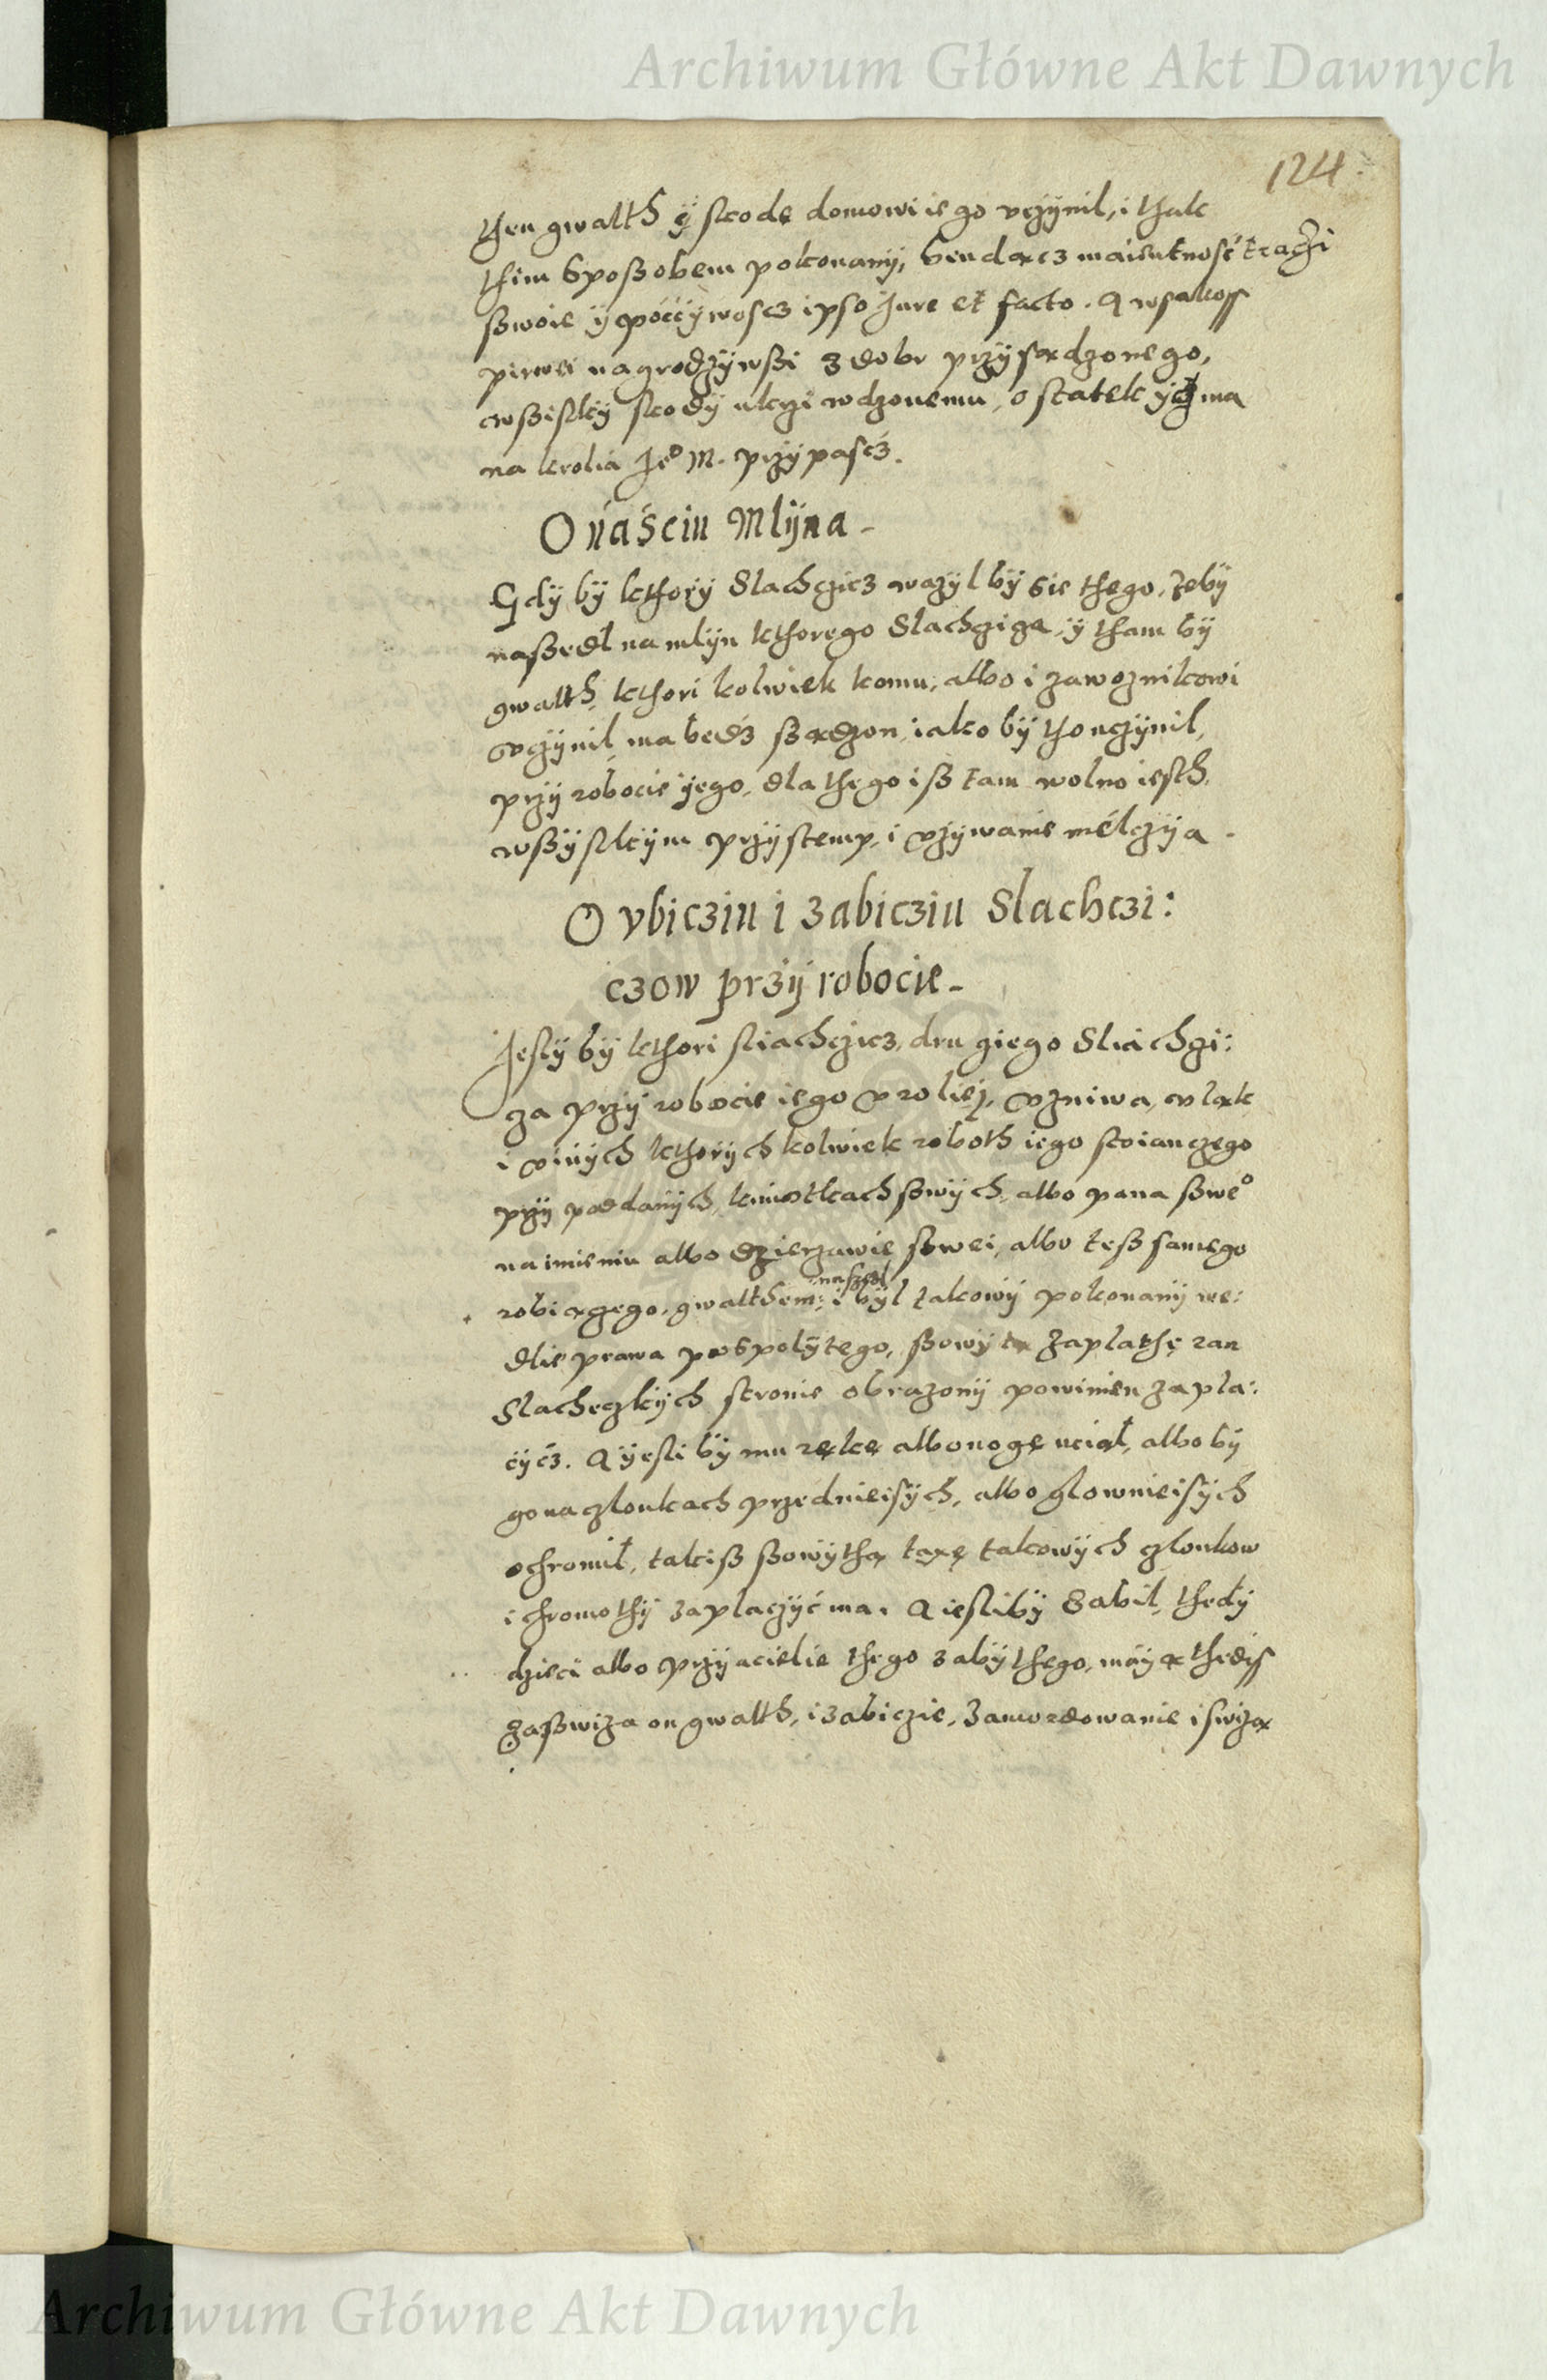 Archiwum Główne Akt Dawnych
124
then gwalth ÿ scode domowi iego vczÿnil, i thak
thim sposzobem pokonanÿ, bendącz maientnosć traczi
szwoie ÿ poććÿwoscz ipso Jure et facto. A wsakoss
pirwei nagrodzÿwszi z dobr przÿsądzonego,
wszistkÿ scodÿ ukrziwdzonemu, ostatek ÿch ma
na krolia Je° M. przÿpascz.
O naściu Mlÿna -
Gdÿ bÿ kthorÿ Slachczicz wazÿl bÿ sie thego, zebÿ
naszedl na mlÿn kthorego Slachziza, ÿ tham bÿ
gwalth, kthori kolwiek komu, albo i zawoznikowi
vczÿnil, ma bedz szadzon, iako bÿ tho uczÿnil,
przÿ robocie ÿego, dla thego isz tam wolno iesth,
wszÿstkÿm przÿstemp, i vzÿwanie mélczÿa.
O vbicziu i zabicziu Slachczi:
czow przÿ robocie -
Jeslÿ bÿ kthori sliachczicz, drugiego Sliachzi:
za przÿ robocie iego v roliej, vzniwa, v ląk
i vinÿch kthorÿch kolwiek roboth iego stoianczego
przÿ poddanÿch, kmiotkach szwÿch, albo pana szwe°
na imieniu albo dzierzawie szwei, albo tesz samego
robiączego, gwalthem: naszedl i bÿl takowÿ pokonanÿ we:
dlie prawa pospolÿtego, szowÿtą zaplathę ran
Slacheczkÿch stronie obrazonÿ powinien zapla:
cÿćz. A ÿesli bÿ mu rękę albo nogę uciął, albo bÿ
go na czlonkach przednieisÿch, albo glownieisÿch
ochromił, takisz szowÿthą taxę takowÿch czlonkow
i chromothÿ zaplaczÿć ma. A iesli bÿ Zabil, thedÿ
dzieci albo przÿacielie thego zabÿthego, máÿą thedÿss
za szwiza on gwalth, i zabiczie, zamordowanie i swizą
Archiwum Główne Akt Dawnych